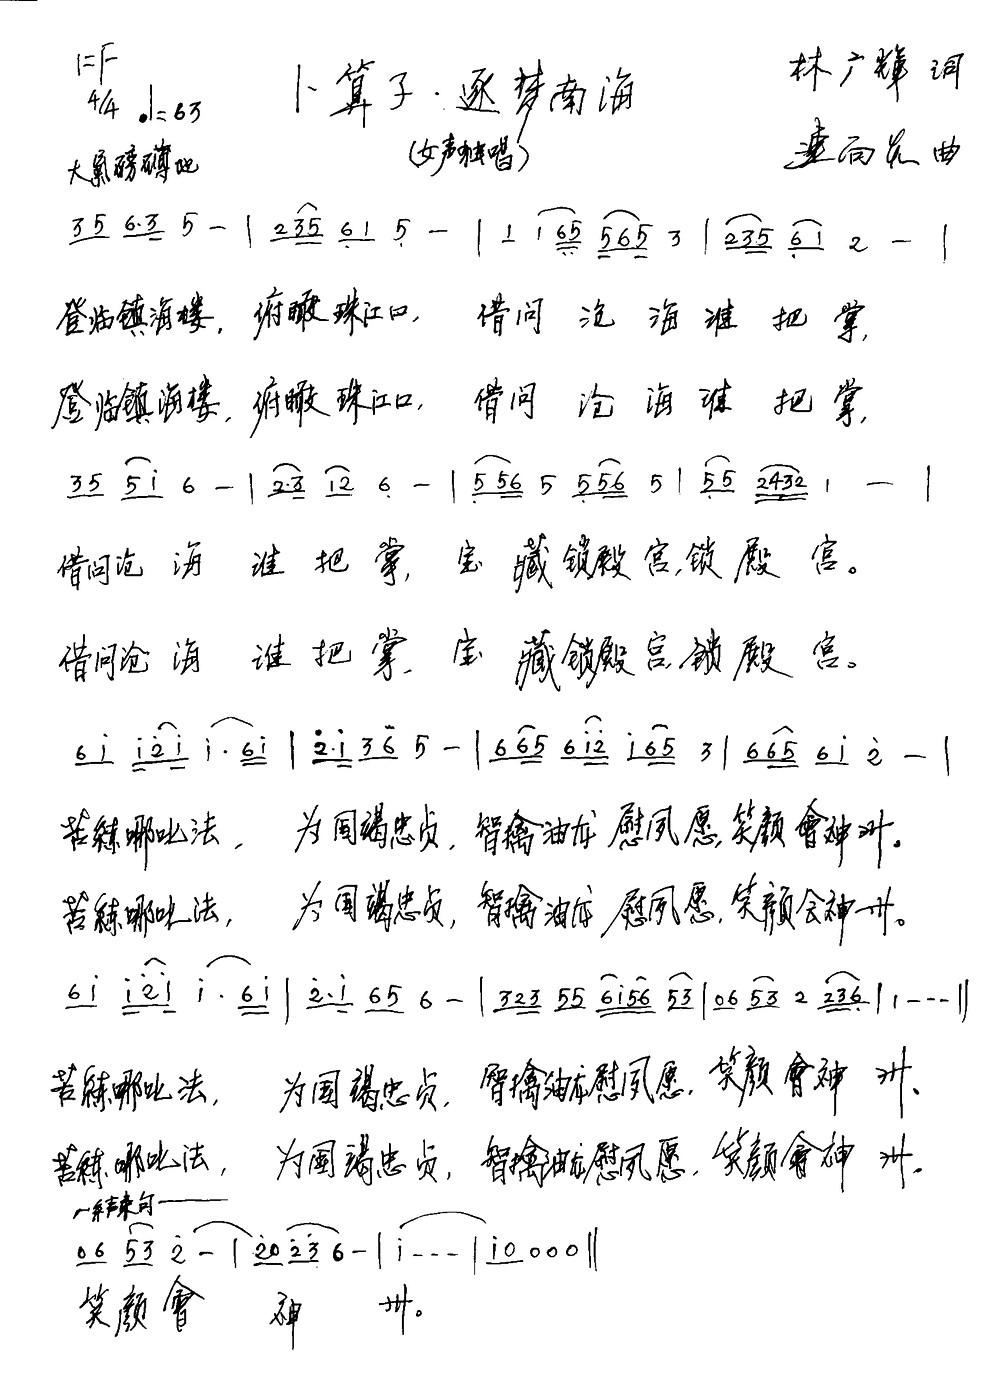 1=F
4/4 ♩=63
卜算子·逐梦南海
林广辉 词
(女声独唱)
曲
大气磅礴地
35 6·3 5 - | 235 61 5 - | 1 i65 565 3 | 235 61 2 - |
登临镇海楼,俯瞰珠江口, 借问沧海谁把掌,
登临镇海楼,俯瞰珠江口, 借问沧海谁把掌,
35 5i 6 - | 2·3 12 6 - | 556 5 556 5 | 55 2432 1 - |
借问沧海谁把掌,宝藏锁殿宫,锁殿宫。
借问沧海谁把掌,宝藏锁殿宫,锁殿宫。
6i i2i i·6i | 2·i 36 5 - | 665 6i2 i65 3 | 665 6i 2 - |
苦练哪吒法, 为国竭忠贞,智擒油龙慰夙愿,笑颜會神州。
苦练哪吒法, 为国竭忠贞,智擒油龙慰夙愿,笑颜会神州。
6i i2i i·6i | 2·i 65 6 - | 323 55 6i56 53 | 06 53 2 236 | 1 - - - ‖
苦练哪吒法, 为国竭忠贞,智擒油龙慰夙愿,笑颜會神州、
苦练哪吒法, 为国竭忠贞,智擒油龙慰夙愿,笑颜會神州。
结束句
06 53 2 - | 20 23 6 - | i - - - | i0 0 0 0 ‖
笑颜會 神 州。